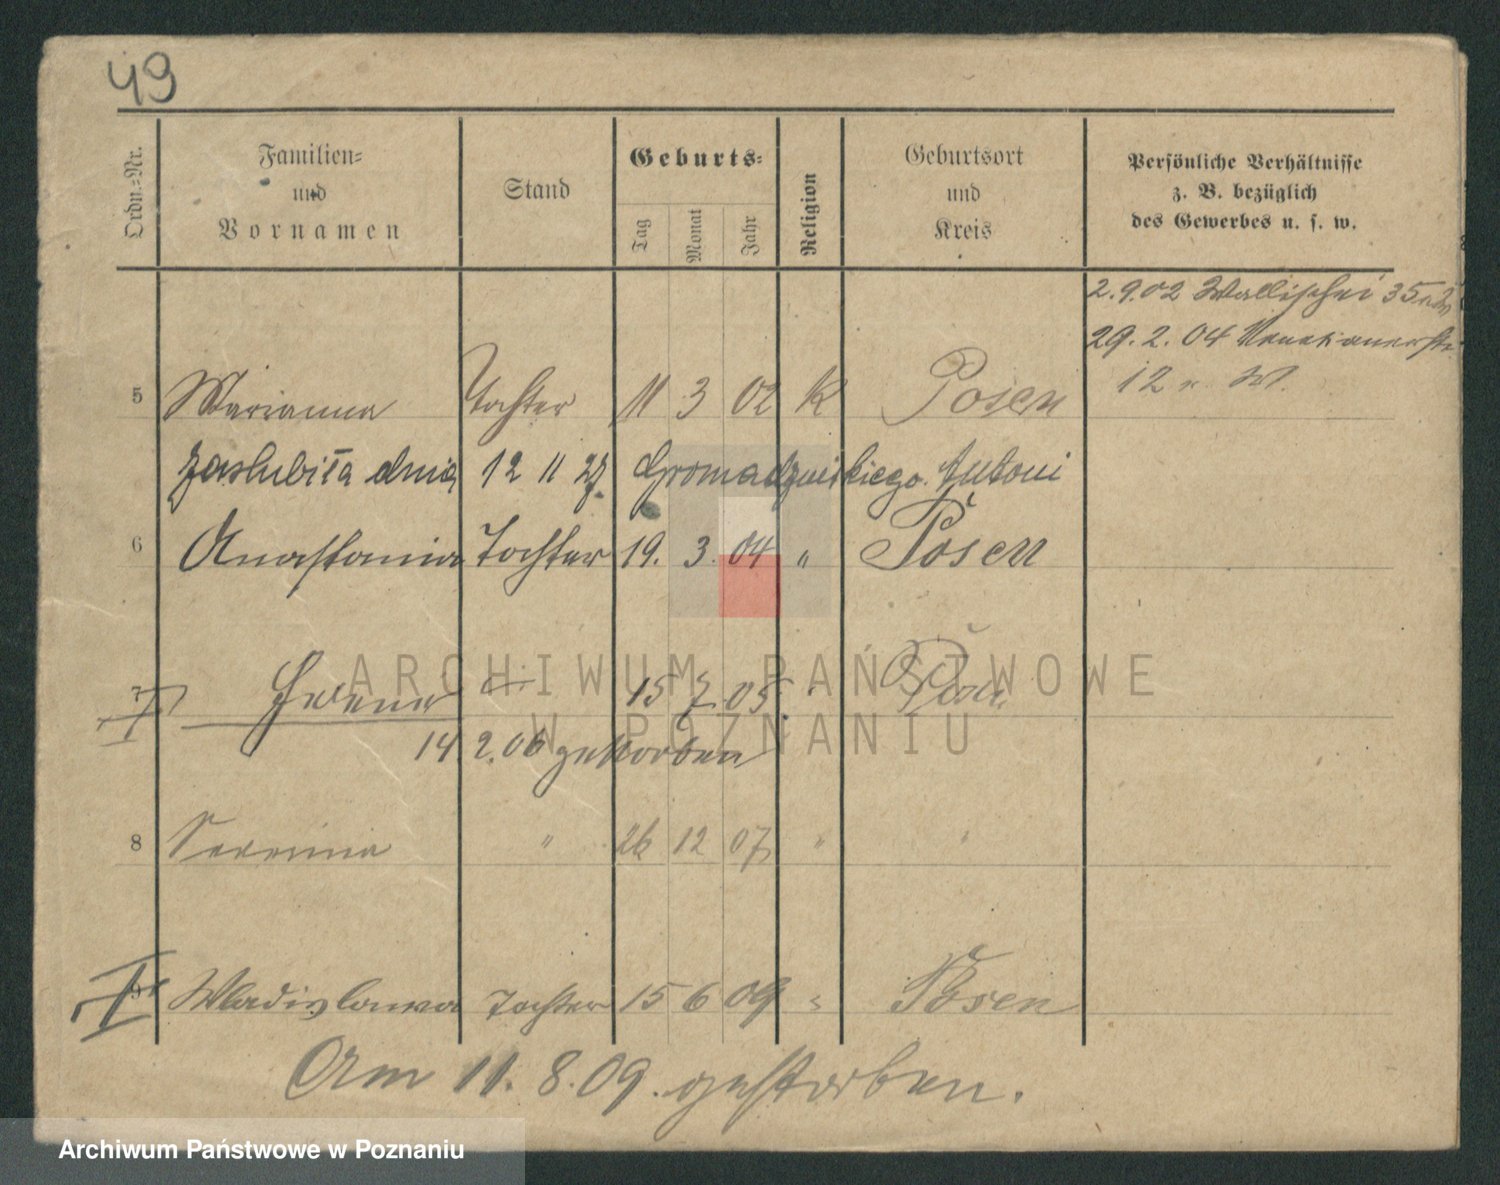 49
Ordn.-Nr.
Familien-
und
Vornamen
Stand
Geburts-
Tag
Monat
Jahr
Religion
Geburtsort
und
Kreis
Persönliche Verhältnisse
z. B. bezüglich
des Gewerbes u. s. w.
2.9.02 Wallischei 35
29.2.04 Venetianerstr
12 W.
5 Marianna Tochter 11 3 02 K Posen
zaślubiła dnia 12 11 27 Antoni
6 Anastasia Tochter 19. 3. 04 " Posen
7 Helena 15 7 05 " Posen
14.2.06 gestorben
8 " 26 12 07 " "
9 Wladislawa Tochter 15 6 09 " Posen
Am 11.8.09. gestorben.
ARCHIWUM PAŃSTWOWE
W POZNANIU
Archiwum Państwowe w Poznaniu